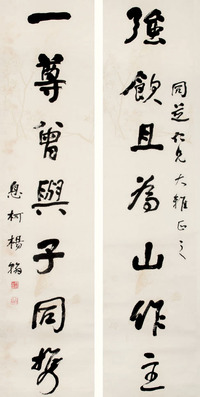 強飲且為山作主
同芝仁兄大雅正之
一尊曾與子同携
息柯楊翰